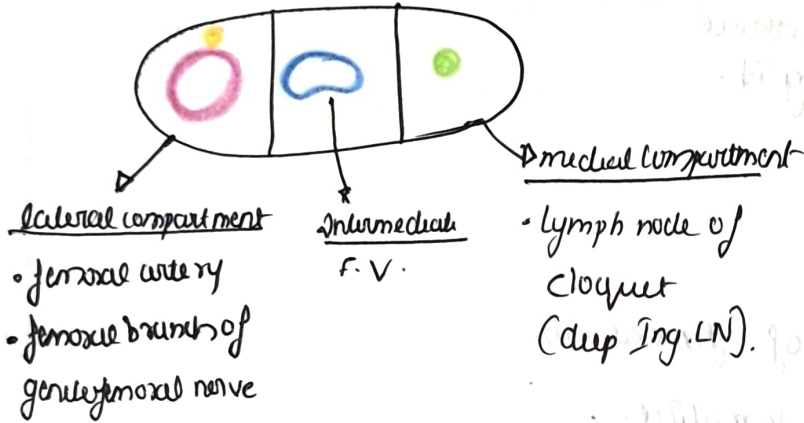 lateral compartment
• femoral artery
• femoral branch of
genitofemoral nerve
Intermediate
F.V.
medial compartment
• lymph node of
cloquet
(deep Ing.LN).